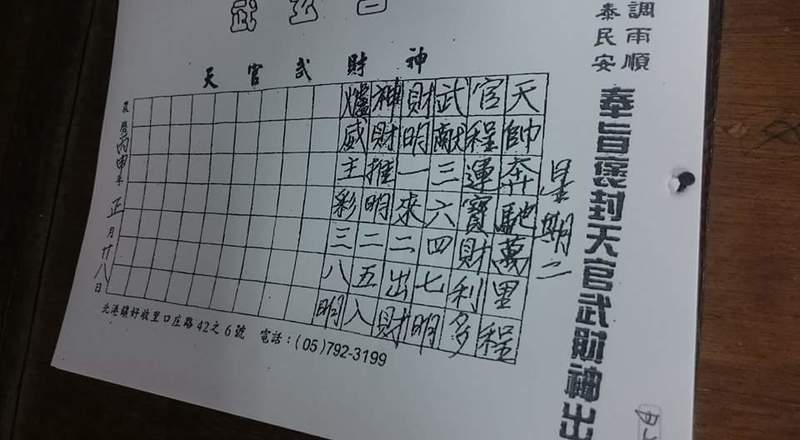 調雨順
泰民安
奉旨褒封天官武財神出
星期二
天官武財神
天帥奔馳萬里程
官程運寶財利多
武獻三六四七明
財明一來二出財
神財推明二五入
爐威主彩三八明
農曆丙申年正月廿八日
北港鎮好收里口庄路42之6號 電話：(05)792-3199